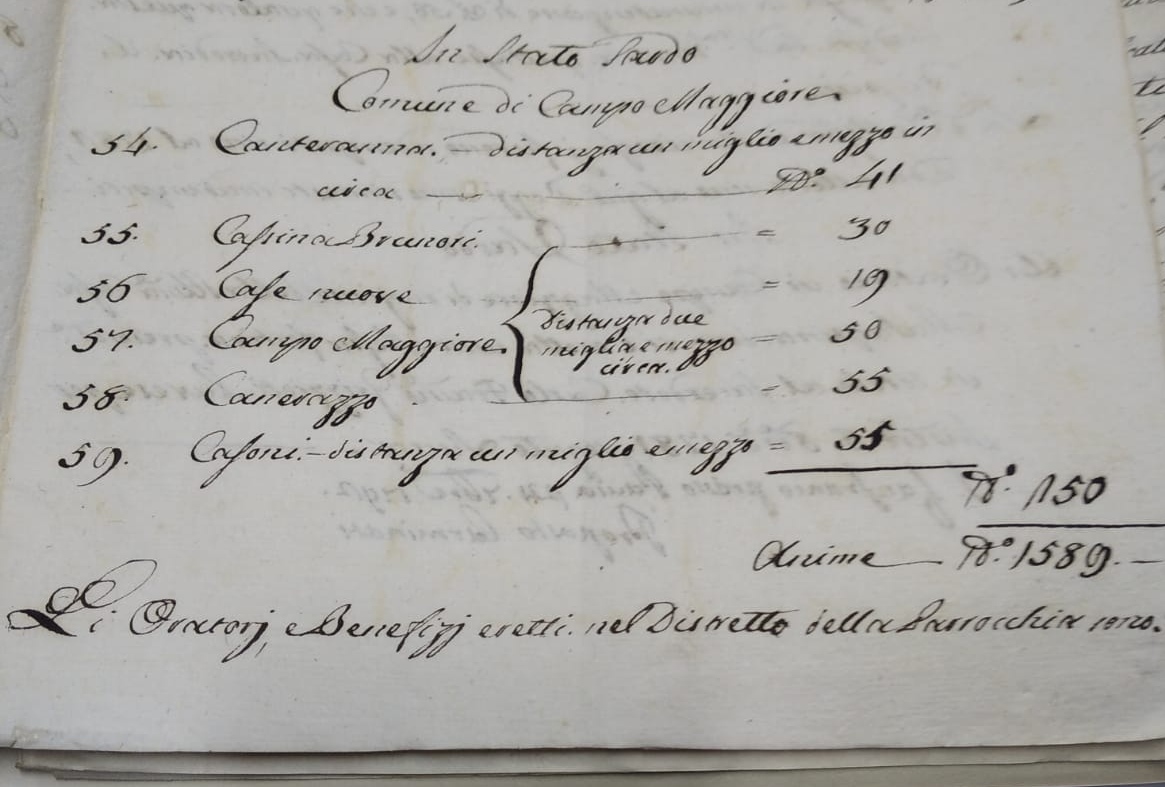 In Stato Sardo
Comune di Campo Maggiore
54. Canteranna. – distanza un miglio e mezzo in
circa — N.° 41
55. Cassina Brunori. = 30
56 Case nuove = 19
57. Campo Maggiore. = 50
distanza due
miglia e mezzo
circa.
58. Canerazzo = 55
59. Casoni. – distanza un miglio e mezzo = 55
N.° 150
Anime — N.° 1589. —
Li Oratorj, e Benefizj eretti nel Distretto della Parrocchia sono.